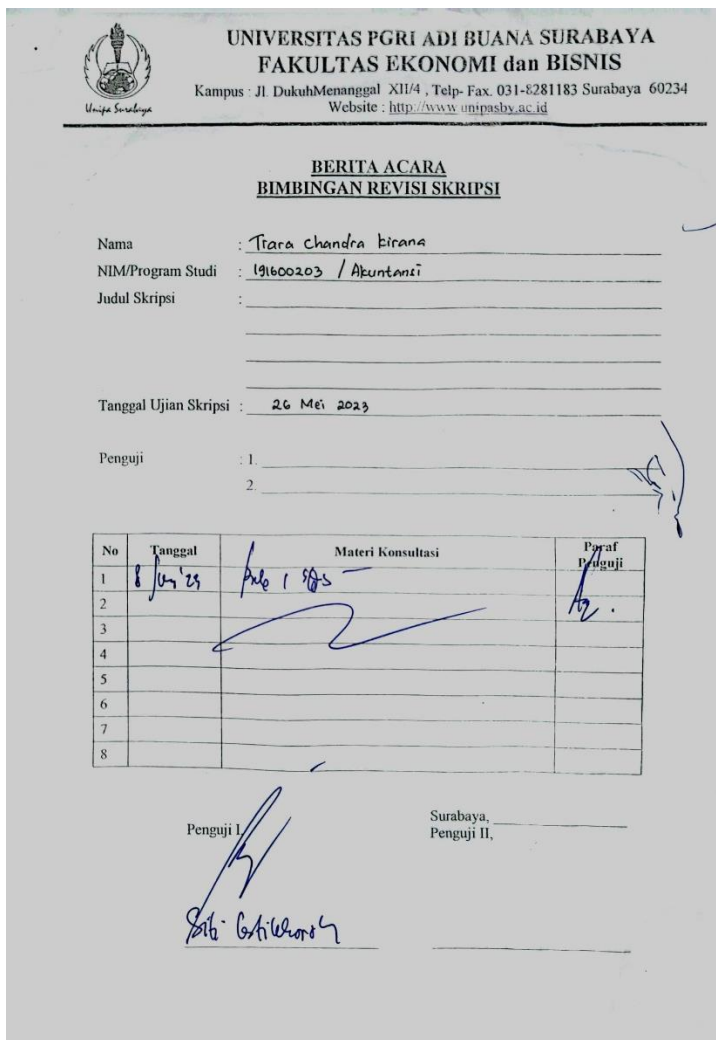 UNIVERSITAS PGRI ADI BUANA SURABAYA
FAKULTAS EKONOMI dan BISNIS
Kampus : Jl. DukuhMenanggal XII/4 , Telp- Fax. 031-8281183 Surabaya 60234
Website : http://www.unipasby.ac.id
Unipa Surabaya
BERITA ACARA
BIMBINGAN REVISI SKRIPSI
Nama : Tiara Chandra Kirana
NIM/Program Studi : 191600203 / Akuntansi
Judul Skripsi :
Tanggal Ujian Skripsi : 26 Mei 2023
Penguji : 1.
2.
No Tanggal Materi Konsultasi Paraf Penguji
1 8
2
3
4
5
6
7
8
Surabaya,
Penguji I, Penguji II,
Siti